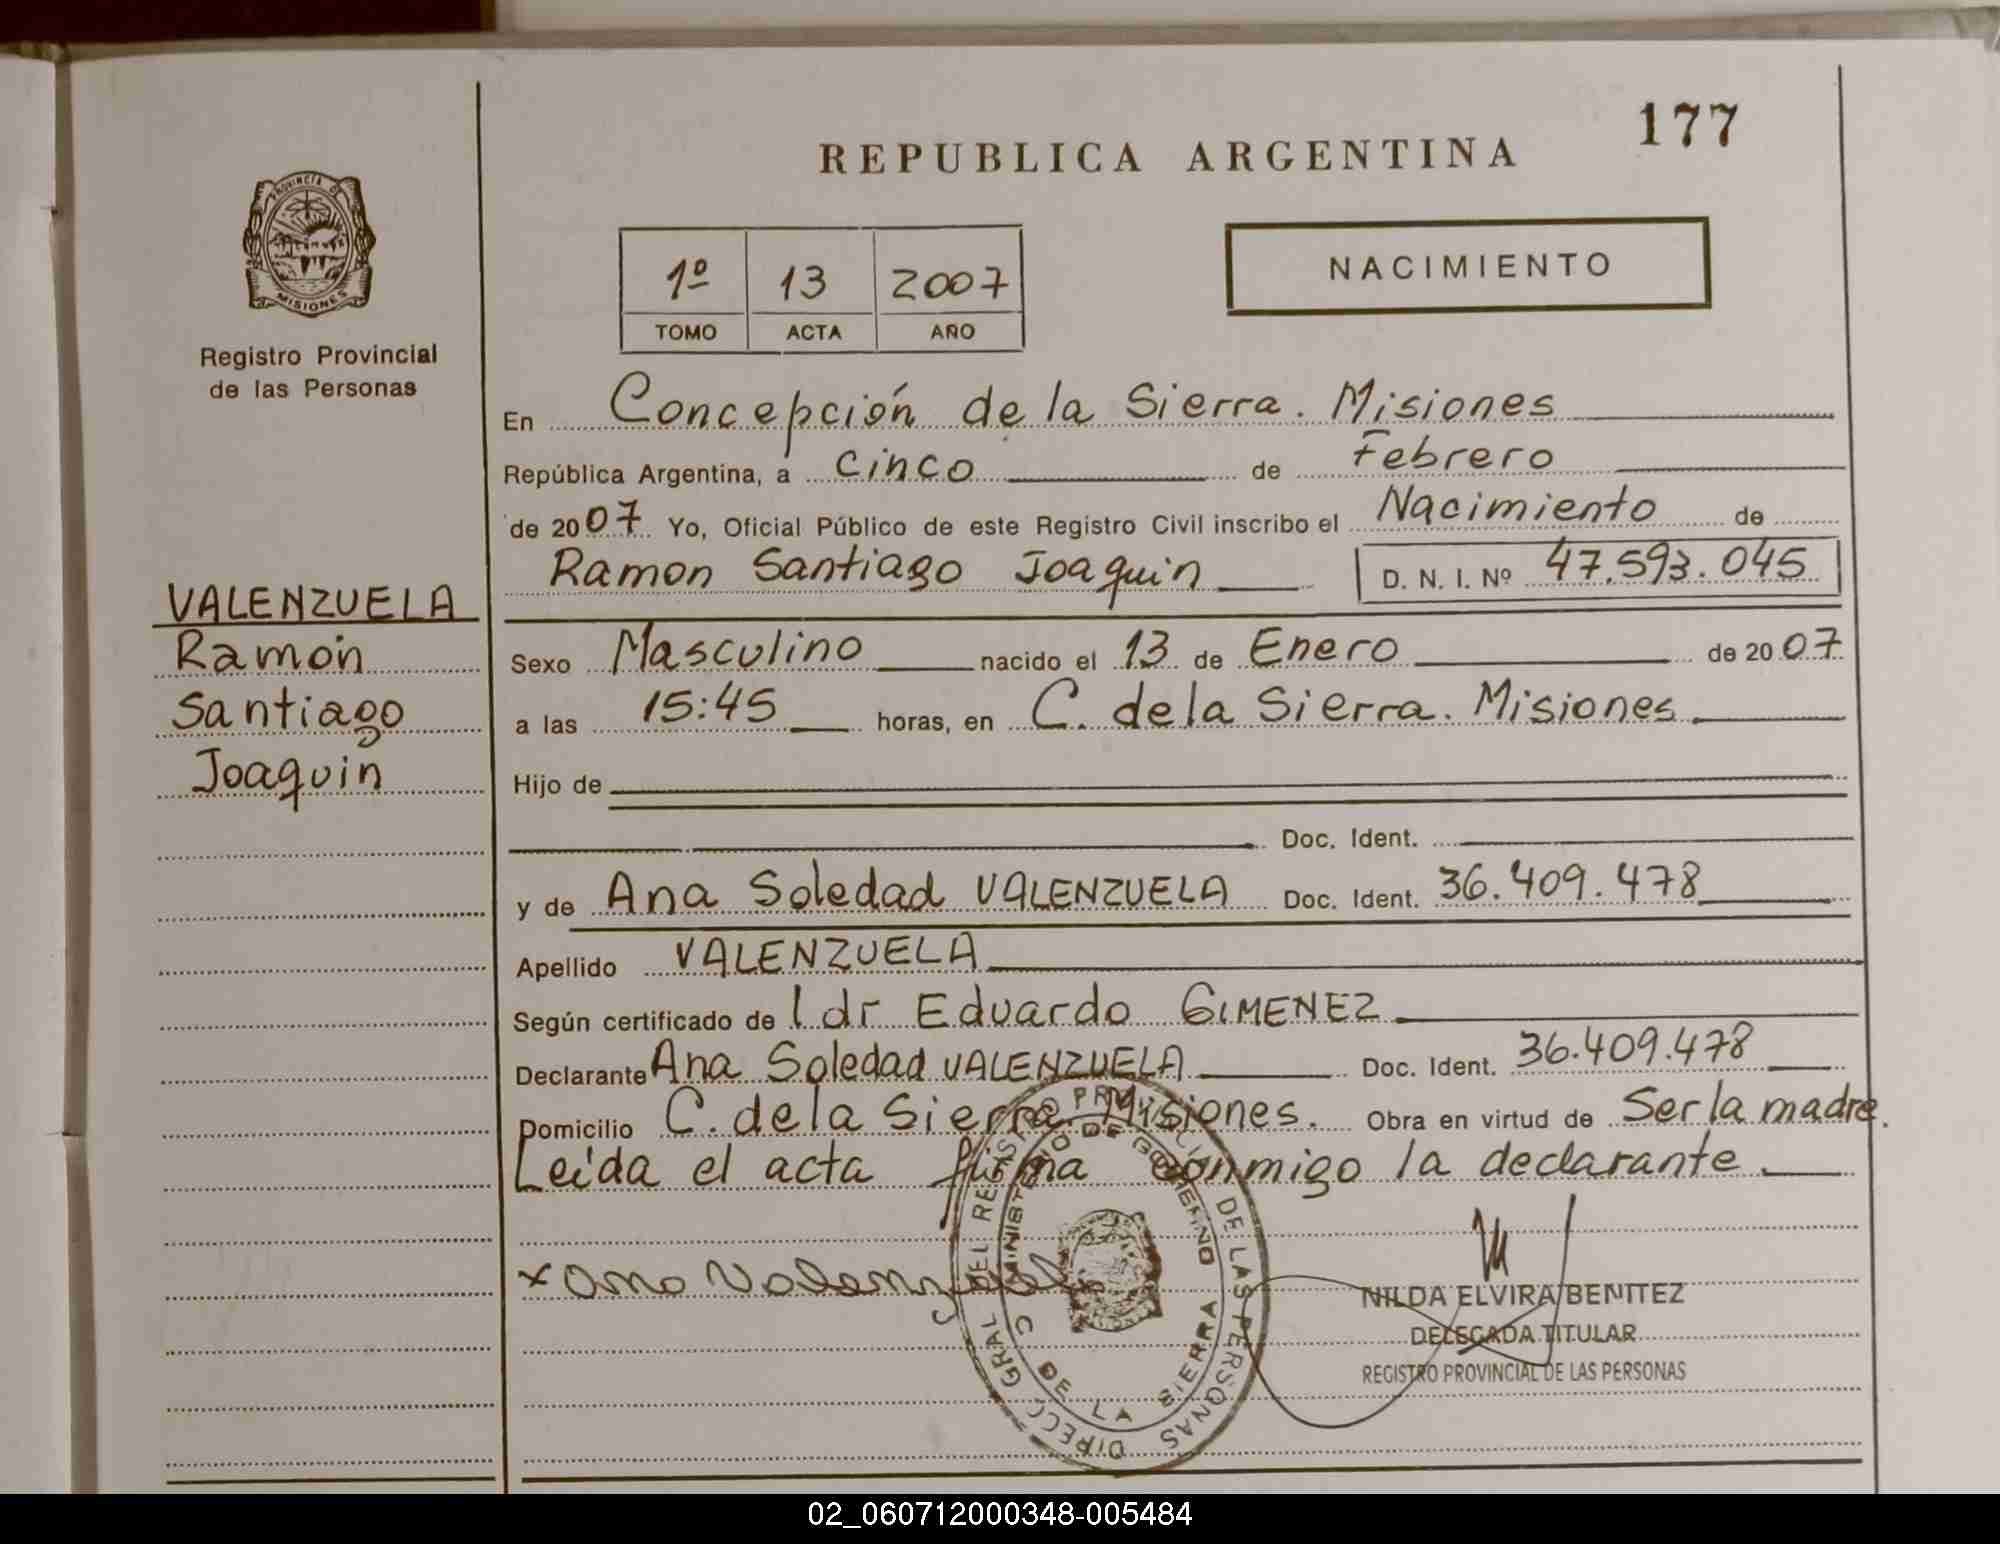 177
REPUBLICA ARGENTINA
PROVINCIA DE
MISIONES
Registro Provincial
de las Personas
1º 13 2007
TOMO ACTA AÑO
NACIMIENTO
En Concepción de la Sierra. Misiones
República Argentina, a cinco de Febrero
de 2007 Yo, Oficial Público de este Registro Civil inscribo el Nacimiento de
Ramon Santiago Joaquin D. N. I. Nº 47.593.045
VALENZUELA
Ramón
Santiago
Joaquin
Sexo Masculino nacido el 13 de Enero de 2007
a las 15:45 horas, en C. de la Sierra. Misiones
Hijo de
Doc. Ident.
y de Ana Soledad VALENZUELA Doc. Ident. 36.409.478
Apellido VALENZUELA
Según certificado de l dr Eduardo GIMENEZ
Declarante Ana Soledad VALENZUELA Doc. Ident. 36.409.478
Domicilio C. de la Sierra Misiones. Obra en virtud de Ser la madre.
Leída el acta firma conmigo la declarante
x Ana Valenzuela
DIRECC GRAL DEL REGISTRO PROVINCIAL DE LAS PERSONAS
MINISTERIO DE GOBIERNO
C DE LA SIERRA
NILDA ELVIRA BENITEZ
DELEGADA TITULAR
REGISTRO PROVINCIAL DE LAS PERSONAS
02_060712000348-005484